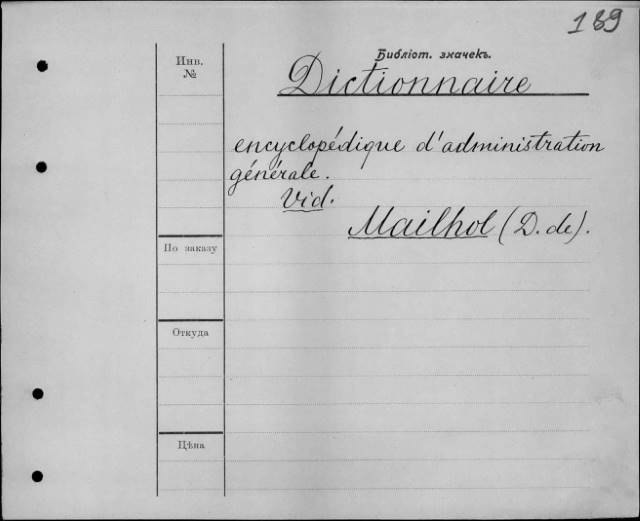 189
Библіот. значекъ.
Инв.
№
Dictionnaire
encyclopédique d'administration
générale.
Vid.
Mailhol (D. de).
По заказу
Откуда
Цѣна